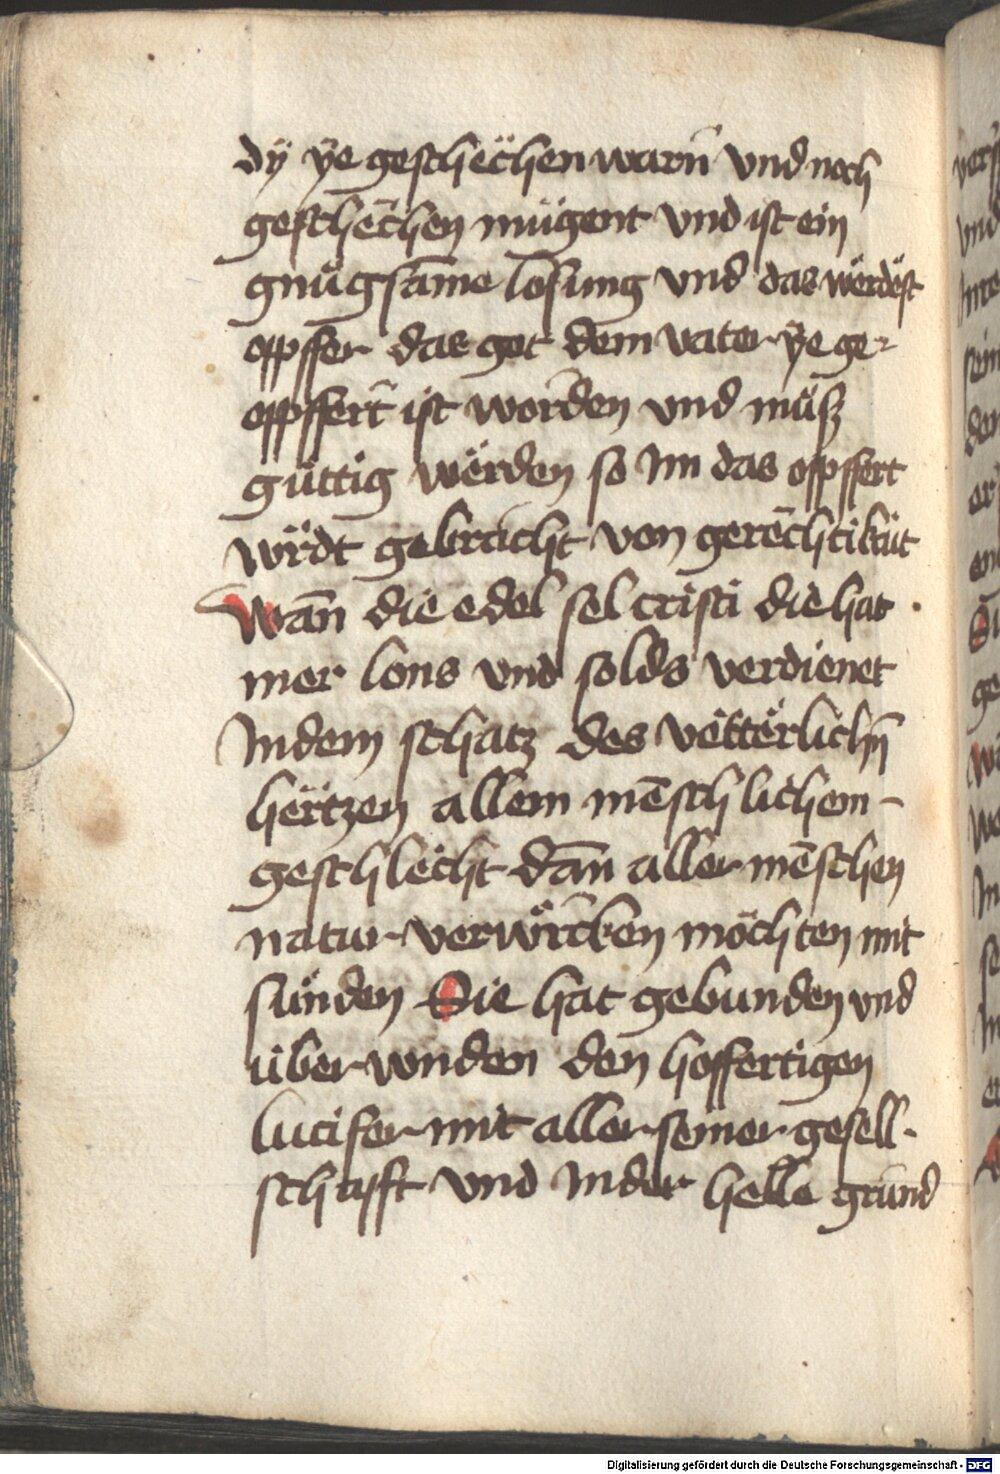 dÿ ÿe geschëchen warn̄ vnd noch
geschēchen mügent vnd ist ein
gnügsame losung vnd das wërdëst
opffer das got dem vater ÿe ge-
opffert ist worden vnd müsz
güttig wërden so Im das opffert
wirdt gebracht von gerëchtikait
Wan̄ die edel sel cristi die hat
mer lons vnd solds verdienet
Indem schatz des vëttërlichn̄
hërtzen allem mēschlichem
geschlëcht dan̄ aller mēschen
natur verwürcken möchten mit
sünden Sie hat gebunden vnd
über wnden den hoffertigen
lucifer mit aller seiner gesell
schafft vnd Inder helle grund
Digitalisierung gefördert durch die Deutsche Forschungsgemeinschaft - DFG